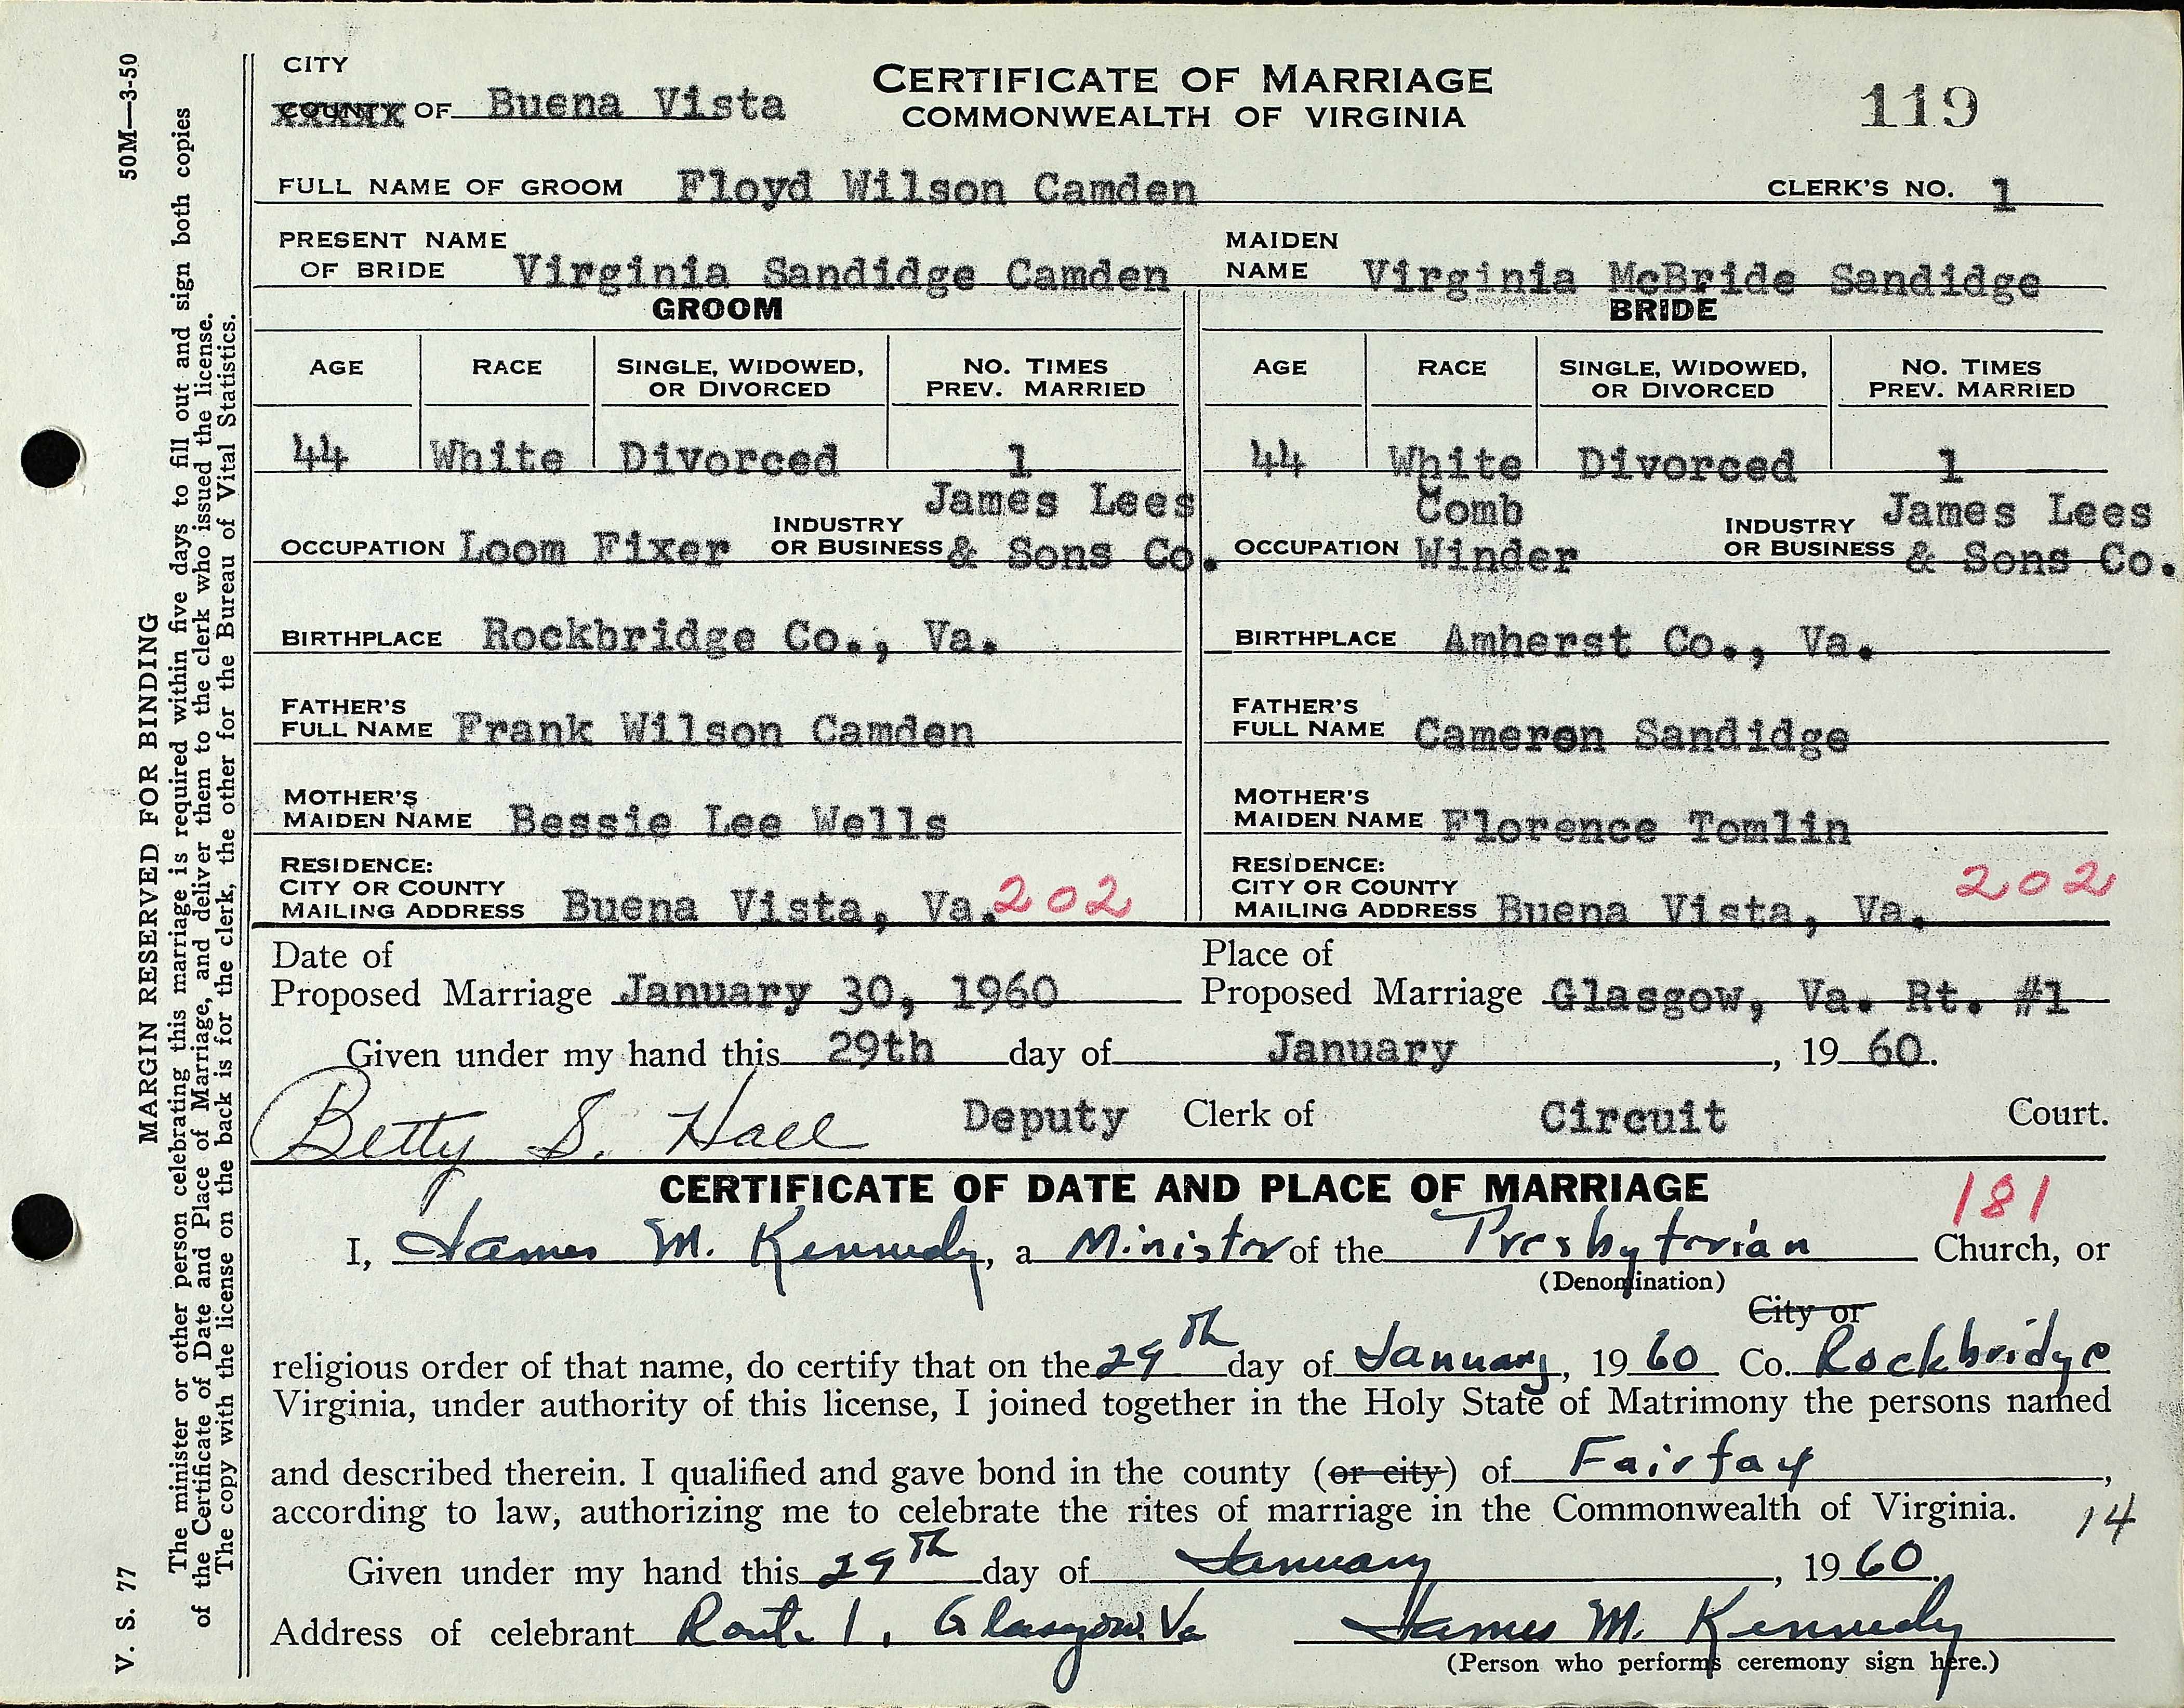 CITY
COUNTY OF Buena Vista
CERTIFICATE OF MARRIAGE
COMMONWEALTH OF VIRGINIA
119
FULL NAME OF GROOM Floyd Wilson Camden CLERK'S NO. 1
PRESENT NAME OF BRIDE Virginia Sandidge Camden MAIDEN NAME Virginia McBride Sandidge
GROOM
AGE RACE SINGLE, WIDOWED, OR DIVORCED NO. TIMES PREV. MARRIED
44 White Divorced 1
OCCUPATION Loom Fixer INDUSTRY OR BUSINESS James Lees & Sons Co.
BIRTHPLACE Rockbridge Co., Va.
FATHER'S FULL NAME Frank Wilson Camden
MOTHER'S MAIDEN NAME Bessie Lee Wells
RESIDENCE:
CITY OR COUNTY
MAILING ADDRESS Buena Vista, Va. 202
BRIDE
AGE RACE SINGLE, WIDOWED, OR DIVORCED NO. TIMES PREV. MARRIED
44 White Divorced 1
OCCUPATION Comb Winder INDUSTRY OR BUSINESS James Lees & Sons Co.
BIRTHPLACE Amherst Co., Va.
FATHER'S FULL NAME Cameron Sandidge
MOTHER'S MAIDEN NAME Florence Tomlin
RESIDENCE:
CITY OR COUNTY
MAILING ADDRESS Buena Vista, Va. 202
Date of Proposed Marriage January 30, 1960 Place of Proposed Marriage Glasgow, Va. Rt. #1
Given under my hand this 29th day of January, 19 60.
Betty S. Hall Deputy Clerk of Circuit Court.
CERTIFICATE OF DATE AND PLACE OF MARRIAGE
181
I, James M. Kennedy, a Minister of the Presbyterian Church, or
(Denomination)
City or
religious order of that name, do certify that on the 29th day of January, 19 60 Co. Rockbridge
Virginia, under authority of this license, I joined together in the Holy State of Matrimony the persons named
and described therein. I qualified and gave bond in the county (or city) of Fairfax,
according to law, authorizing me to celebrate the rites of marriage in the Commonwealth of Virginia.
14
Given under my hand this 29th day of January, 19 60.
Address of celebrant Route 1, Glasgow, Va James M. Kennedy
(Person who performs ceremony sign here.)
V. S. 77 MARGIN RESERVED FOR BINDING 50M—3-50
The minister or other person celebrating this marriage is required within five days to fill out and sign both copies
of the Certificate of Date and Place of Marriage, and deliver them to the clerk who issued the license.
The copy with the license on the back is for the clerk, the other for the Bureau of Vital Statistics.